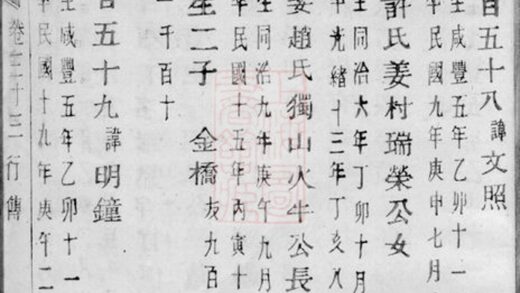 百五十八諱文照
生咸豐五年乙卯十一
中民國九年庚申七月
許氏姜村瑞榮公女
生同治六年丁卯十月
中光緒十三年丁亥八
姜趙氏獨山火牛公長
生同治九年庚午九月
卒民國十五年丙寅十
生二子 金橋友九百
一千百十
百五十九諱明鐘
生咸豐五年乙卯十一
中民國十九年庚午二
卷三十三 行傳